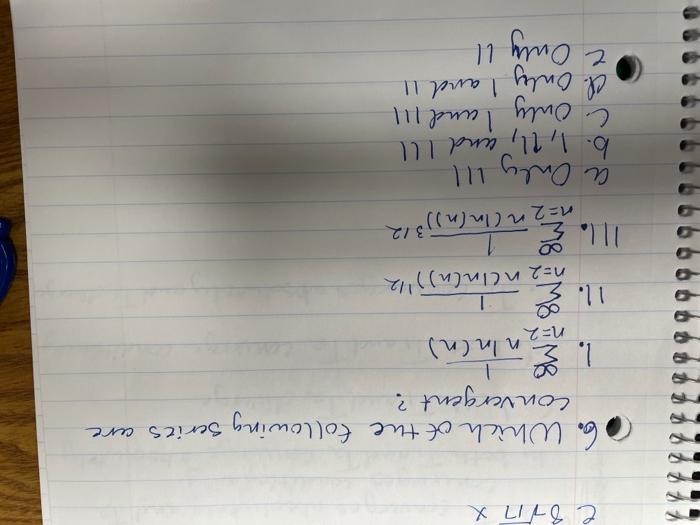 c 8√17 x
6. Which of the following series are
convergent?
I. ∞ Σ n=2 1/(n ln(n))
II. ∞ Σ n=2 1/(n(ln(n))^1/2)
III. ∞ Σ n=2 1/(n(ln(n))^3/2)
a. Only III
b. I, II, and III
c. Only I and III
d. Only I and II
e. Only II